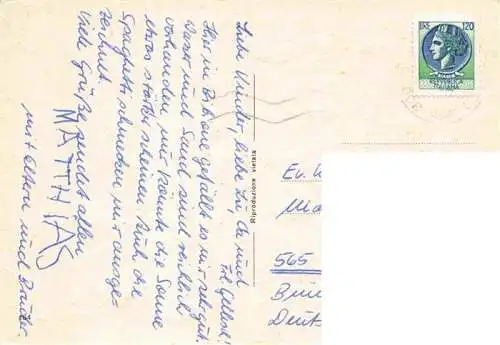 Liebe Kinder, liebe Ev, Da und
Frl. Gelhest!
Hier in Bibione gefällt es mir sehr gut.
Wasser und Sand sind reichlich
vorhanden nur könnte die Sonne
etwas stärker scheinen. Auch die
Spaghetti schmecken mir ausge-
zeichnet.
Viele Grüße sendet allen
MATTHIAS
mit Eltern und Bruder.
Riproduzione vietata
LIRE 120
Ev. K
Ma
565
Deut